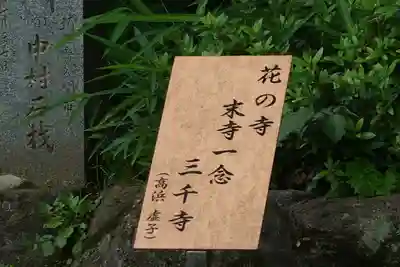 花の寺
末寺一念
三千寺
(高浜 虚子)
中村三栈